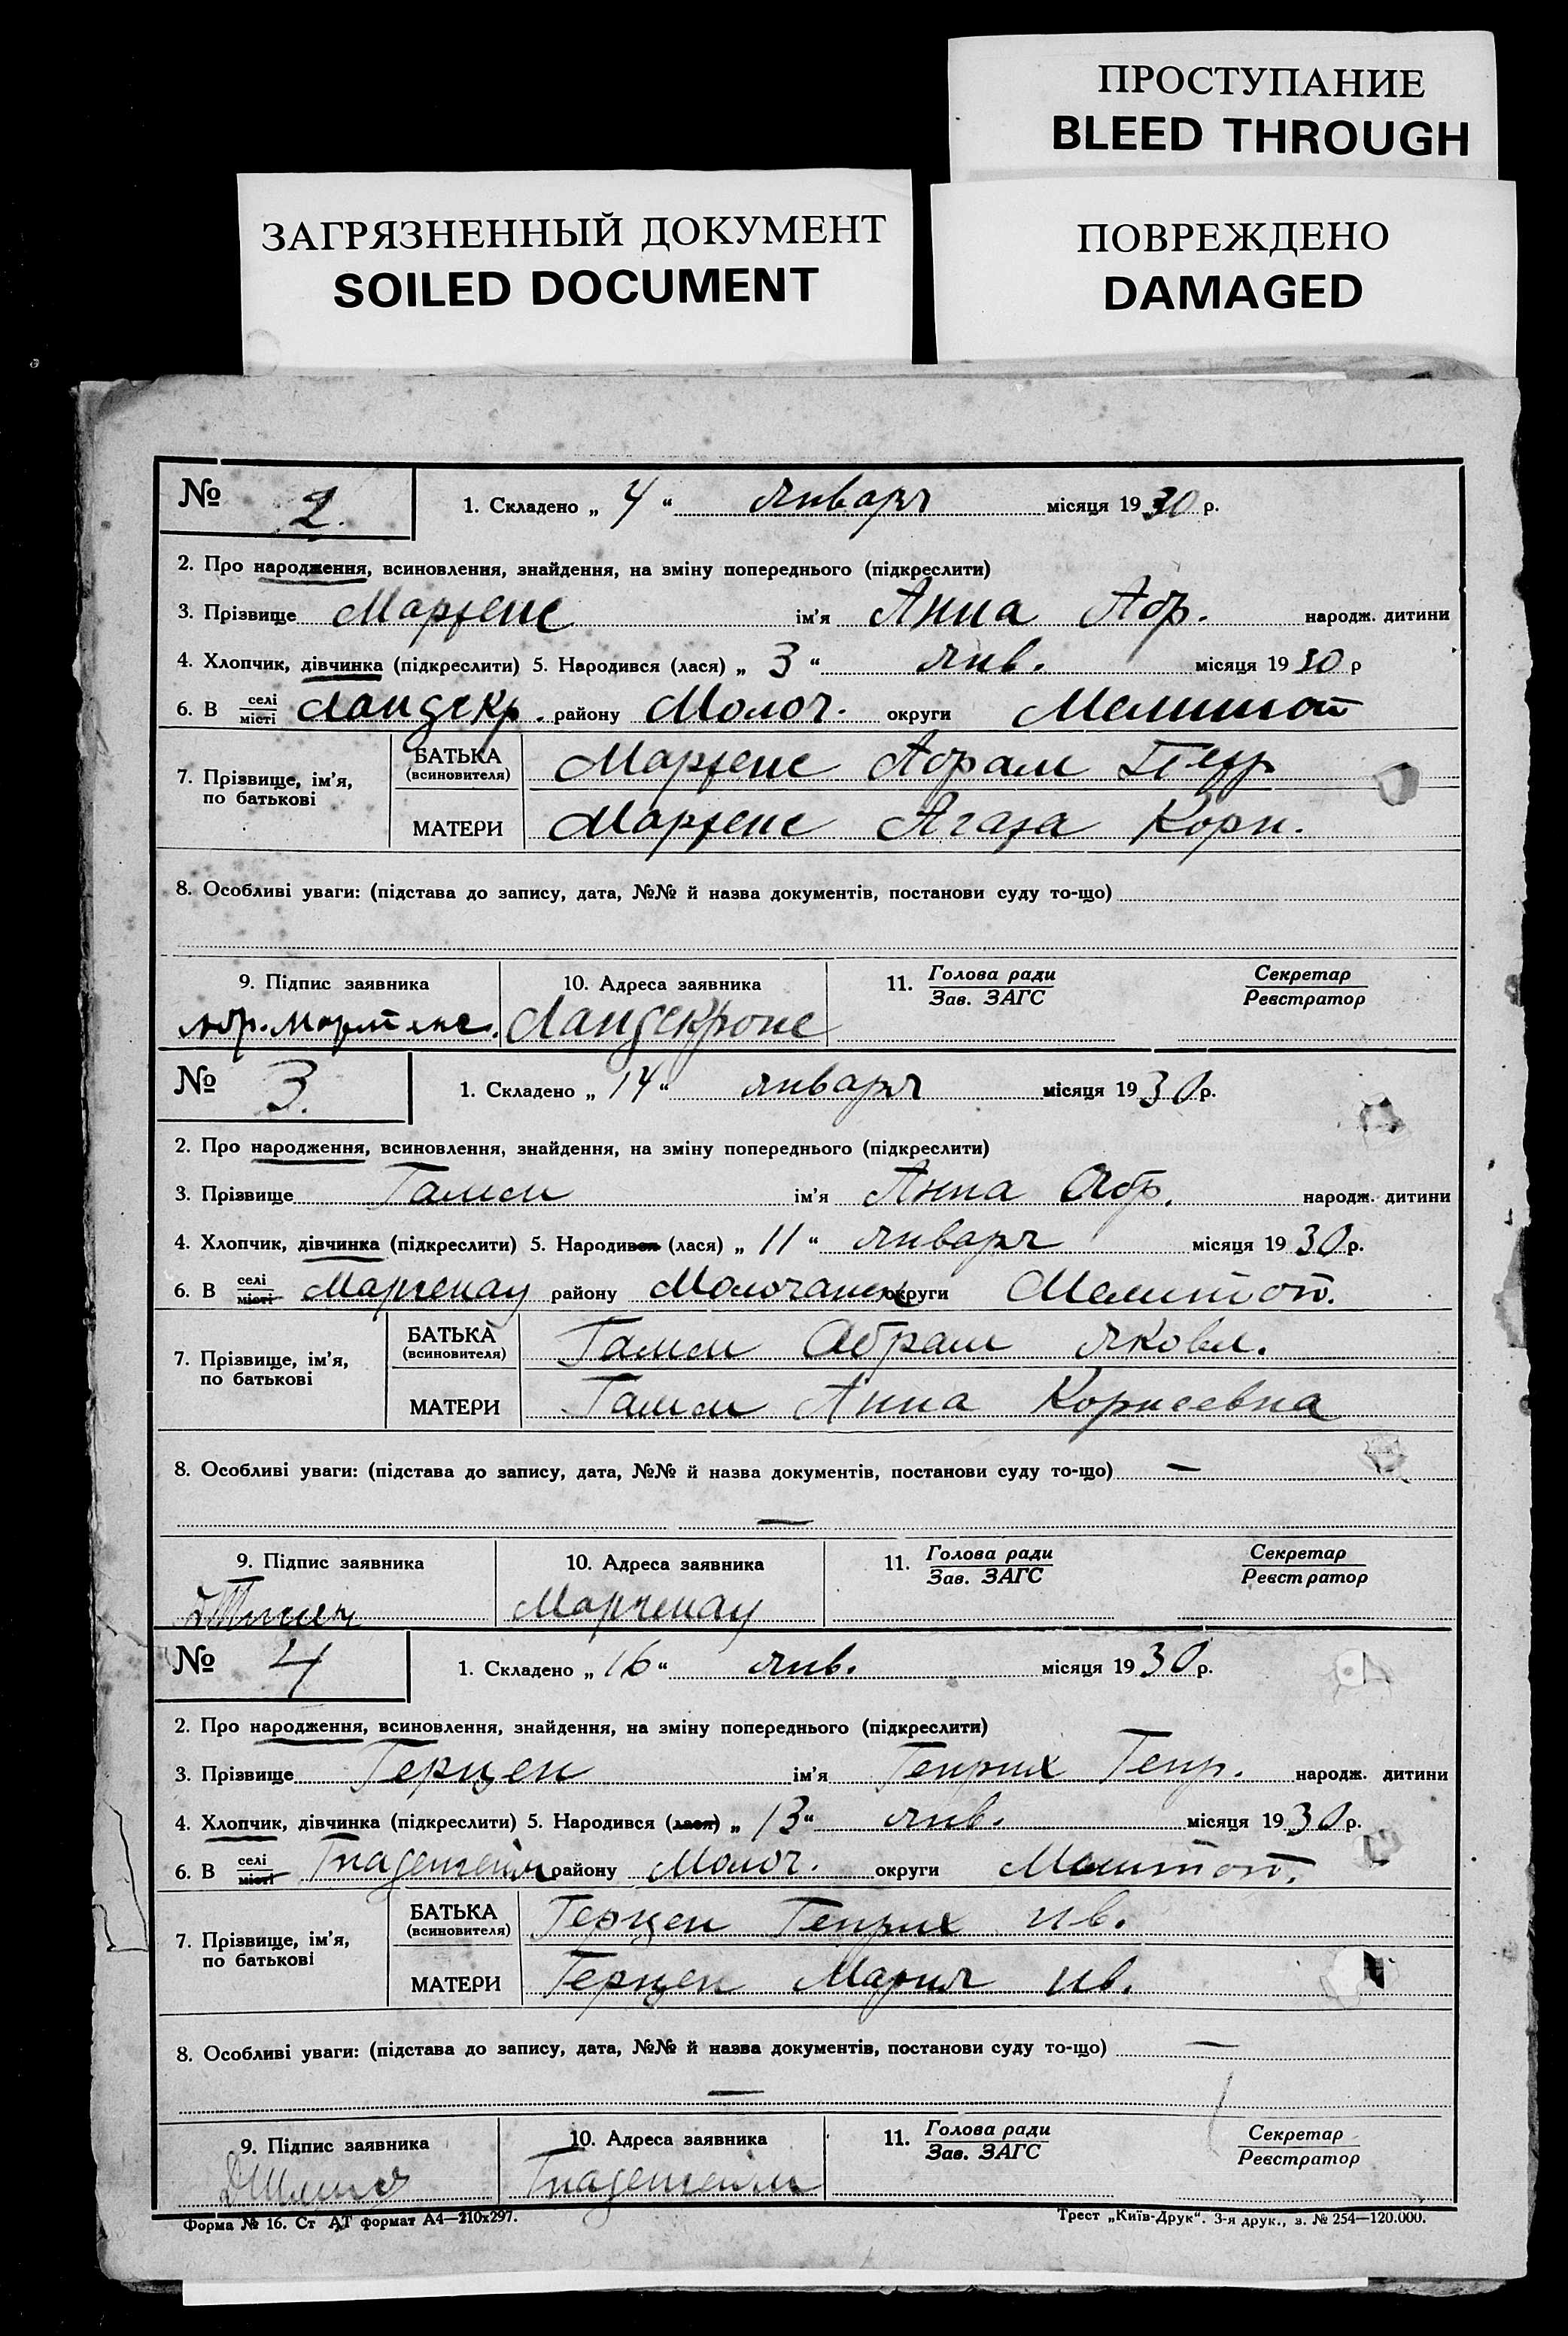 ПРОСТУПАНИЕ
BLEED THROUGH
ЗАГРЯЗНЕННЫЙ ДОКУМЕНТ
SOILED DOCUMENT
ПОВРЕЖДЕНО
DAMAGED
№ 2. 1. Складено „ 4 “ января місяця 1930 р.
2. Про народження, всиновлення, знайдення, на зміну попереднього (підкреслити)
3. Прізвище Мартенс ім'я Анна Абр. народж. дитини
4. Хлопчик, дівчинка (підкреслити) 5. Народився (лася) „ 3 “ янв. місяця 1930 р
6. В селі місті Ландскр. району Молоч. округи Мелитоп
7. Прізвище, ім'я, по батькові
БАТЬКА (всиновителя) Мартенс Абрам Петр
МАТЕРИ Мартенс Агата Корн.
8. Особливі уваги: (підстава до запису, дата, №№ й назва документів, постанови суду то-що)
9. Підпис заявника 10. Адреса заявника 11. Голова ради Зав. ЗАГС Секретар Реєстратор
Абр. Мартенс. Ландскроне
№ 3. 1. Складено „ 14 “ января місяця 1930 р.
2. Про народження, всиновлення, знайдення, на зміну попереднього (підкреслити)
3. Прізвище Гамм ім'я Анна Абр. народж. дитини
4. Хлопчик, дівчинка (підкреслити) 5. Народився (лася) „ 11 “ января місяця 1930 р.
6. В селі місті Маргенау району Молочанск округи Мелитоп.
7. Прізвище, ім'я, по батькові
БАТЬКА (всиновителя) Гамм Абрам Яковл.
МАТЕРИ Гамм Анна Корнеевна
8. Особливі уваги: (підстава до запису, дата, №№ й назва документів, постанови суду то-що) —
—
9. Підпис заявника 10. Адреса заявника 11. Голова ради Зав. ЗАГС Секретар Реєстратор
Маргенау
№ 4 1. Складено „ 16 “ янв. місяця 1930 р.
2. Про народження, всиновлення, знайдення, на зміну попереднього (підкреслити)
3. Прізвище Герцен ім'я Генрих Генр. народж. дитини
4. Хлопчик, дівчинка (підкреслити) 5. Народився (лася) „ 13 “ янв. місяця 1930 р.
6. В селі місті Гнаденгейм району Молоч. округи Мелитоп.
7. Прізвище, ім'я, по батькові
БАТЬКА (всиновителя) Герцен Генрих Ив.
МАТЕРИ Герцен Мария Ив.
8. Особливі уваги: (підстава до запису, дата, №№ й назва документів, постанови суду то-що) —
—
9. Підпис заявника 10. Адреса заявника 11. Голова ради Зав. ЗАГС Секретар Реєстратор
Гнаденгейм
Форма № 16. Ст АТ формат А4—210х297. Трест „Київ-Друк“. 3-я друк., з. № 254—120.000.